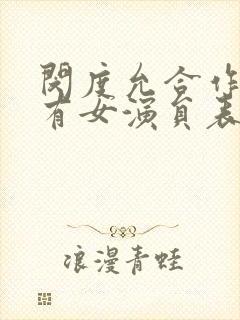 閔度允合作
有女演員表
浪漫青蛙